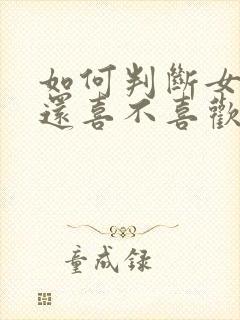 如何判斷女
還喜不喜歡
童成錄